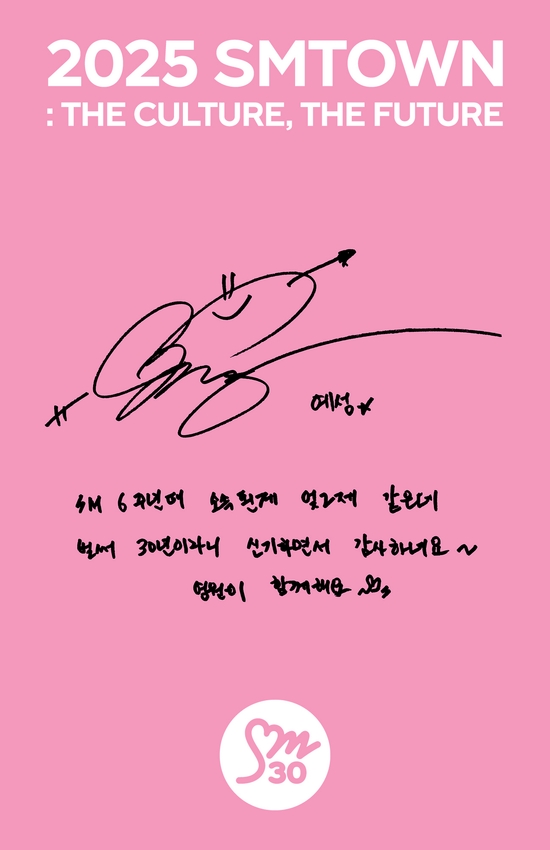 2025 SMTOWN
: THE CULTURE, THE FUTURE
예성☆
SM 6주년에 소속된게 엊그제 같은데
벌써 30년이라니 신기하면서 감사하네요~
영원히 함께해요~♡
SM
30